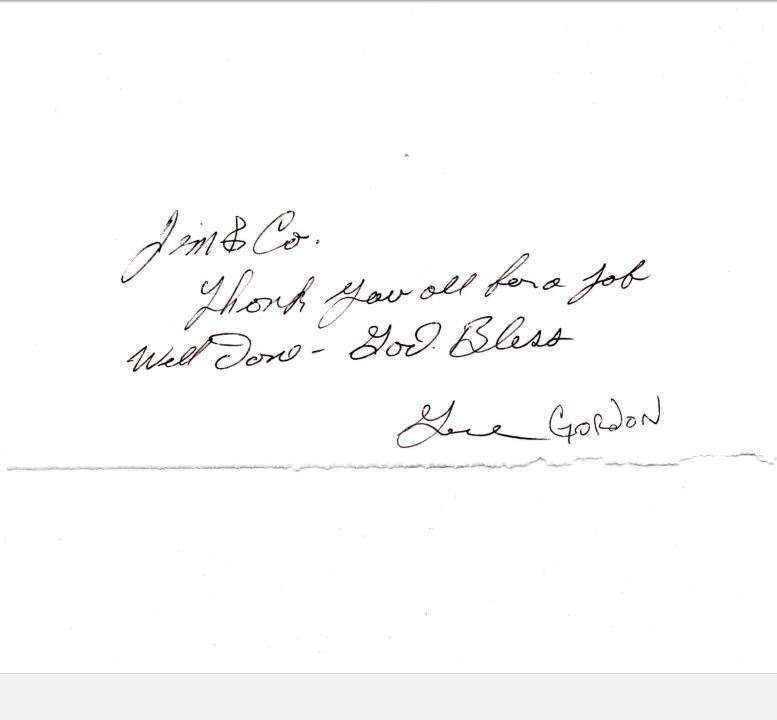 Jim & Co.
Thank you all for a job
Well Done - God Bless
Gene GORDON